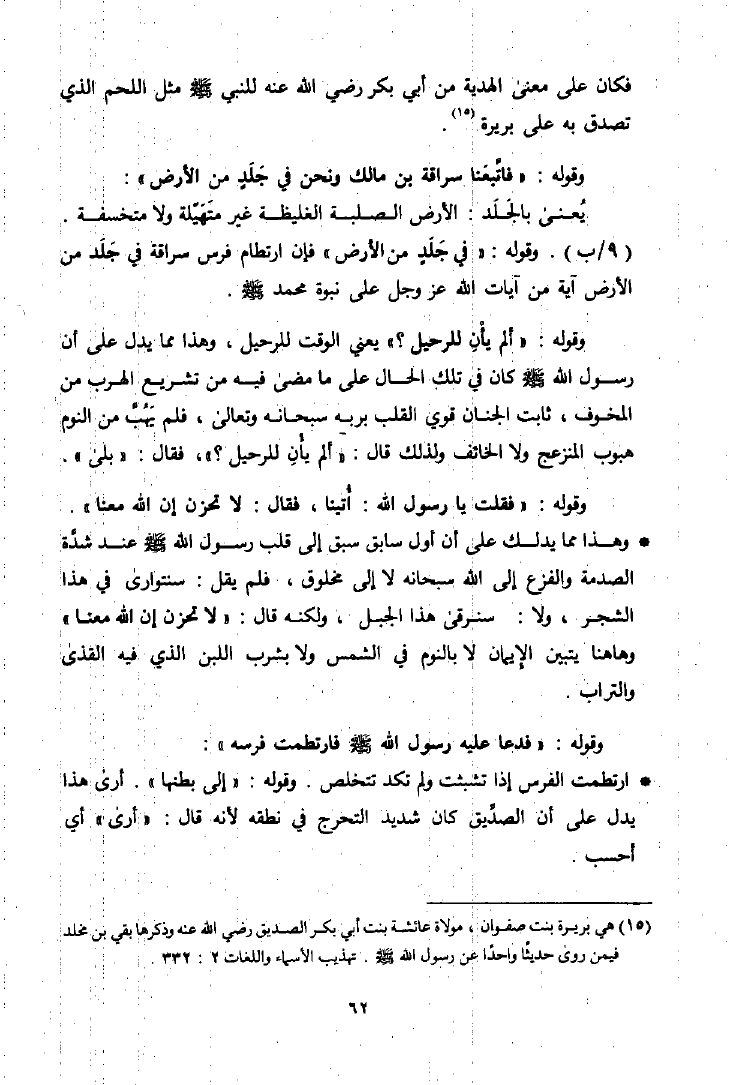 فكان على معنىٰ الهدية من أبي بكر رضي الله عنه للنبي ﷺ مثل اللحم الذي
تصدق به على بريرة (١٥) .
وقوله : « فاتَّبعَنا سراقة بن مالك ونحن في جَلَدٍ من الأرض » :
يُعنىٰ بالجَلَد : الأرض الصلبة الغليظة غير متَهَيّلة ولا منخسفة .
( ٩/ب ) . وقوله : « في جَلَدٍ من الأرض » فإن ارتطام فرس سراقة في جَلَد من
الأرض آية من آيات الله عز وجل على نبوة محمد ﷺ .
وقوله : « ألم يأْنِ للرحيل ؟» يعني الوقت للرحيل ، وهذا مما يدل على أن
رسول الله ﷺ كان في تلك الحال على ما مضىٰ فيه من تشريع الهرب من
المخوف ، ثابت الجنان قوي القلب بربه سبحانه وتعالىٰ ، فلم يَهُبَّ من النوم
هبوب المنزعج ولا الخائف ولذلك قال : « ألم يأْنِ للرحيل ؟»، فقال : « بلىٰ » .
وقوله : « فقلت يا رسول الله : أُتينا ، فقال : لا تحزن إن الله معنا » .
* وهذا مما يدلك على أن أول سابق سبق إلى قلب رسول الله ﷺ عند شدَّة
الصدمة والفزع إلى الله سبحانه لا إلى مخلوق ، فلم يقل : سنتوارىٰ في هذا
الشجر ، ولا : سنرقىٰ هذا الجبل ، ولكنه قال : « لا تحزن إن الله معنا »
وهاهنا يتبين الإيمان لا بالنوم في الشمس ولا بشرب اللبن الذي فيه القذىٰ
والتراب .
وقوله : « فدعا عليه رسول الله ﷺ فارتطمت فرسه » :
* ارتطمت الفرس إذا تشبثت ولم تكد تتخلص . وقوله : « إلى بطنها » . أرىٰ هذا
يدل على أن الصدِّيق كان شديد التحرج في نطقه لأنه قال : « أرىٰ » أي
أحسب .
(١٥) هي بريرة بنت صفوان ، مولاة عائشة بنت أبي بكر الصديق رضي الله عنه وذكرها بقي بن مخلد
فيمن روىٰ حديثًا واحدًا عن رسول الله ﷺ . تهذيب الأسماء واللغات ٢ : ٣٣٢ .
٦٢